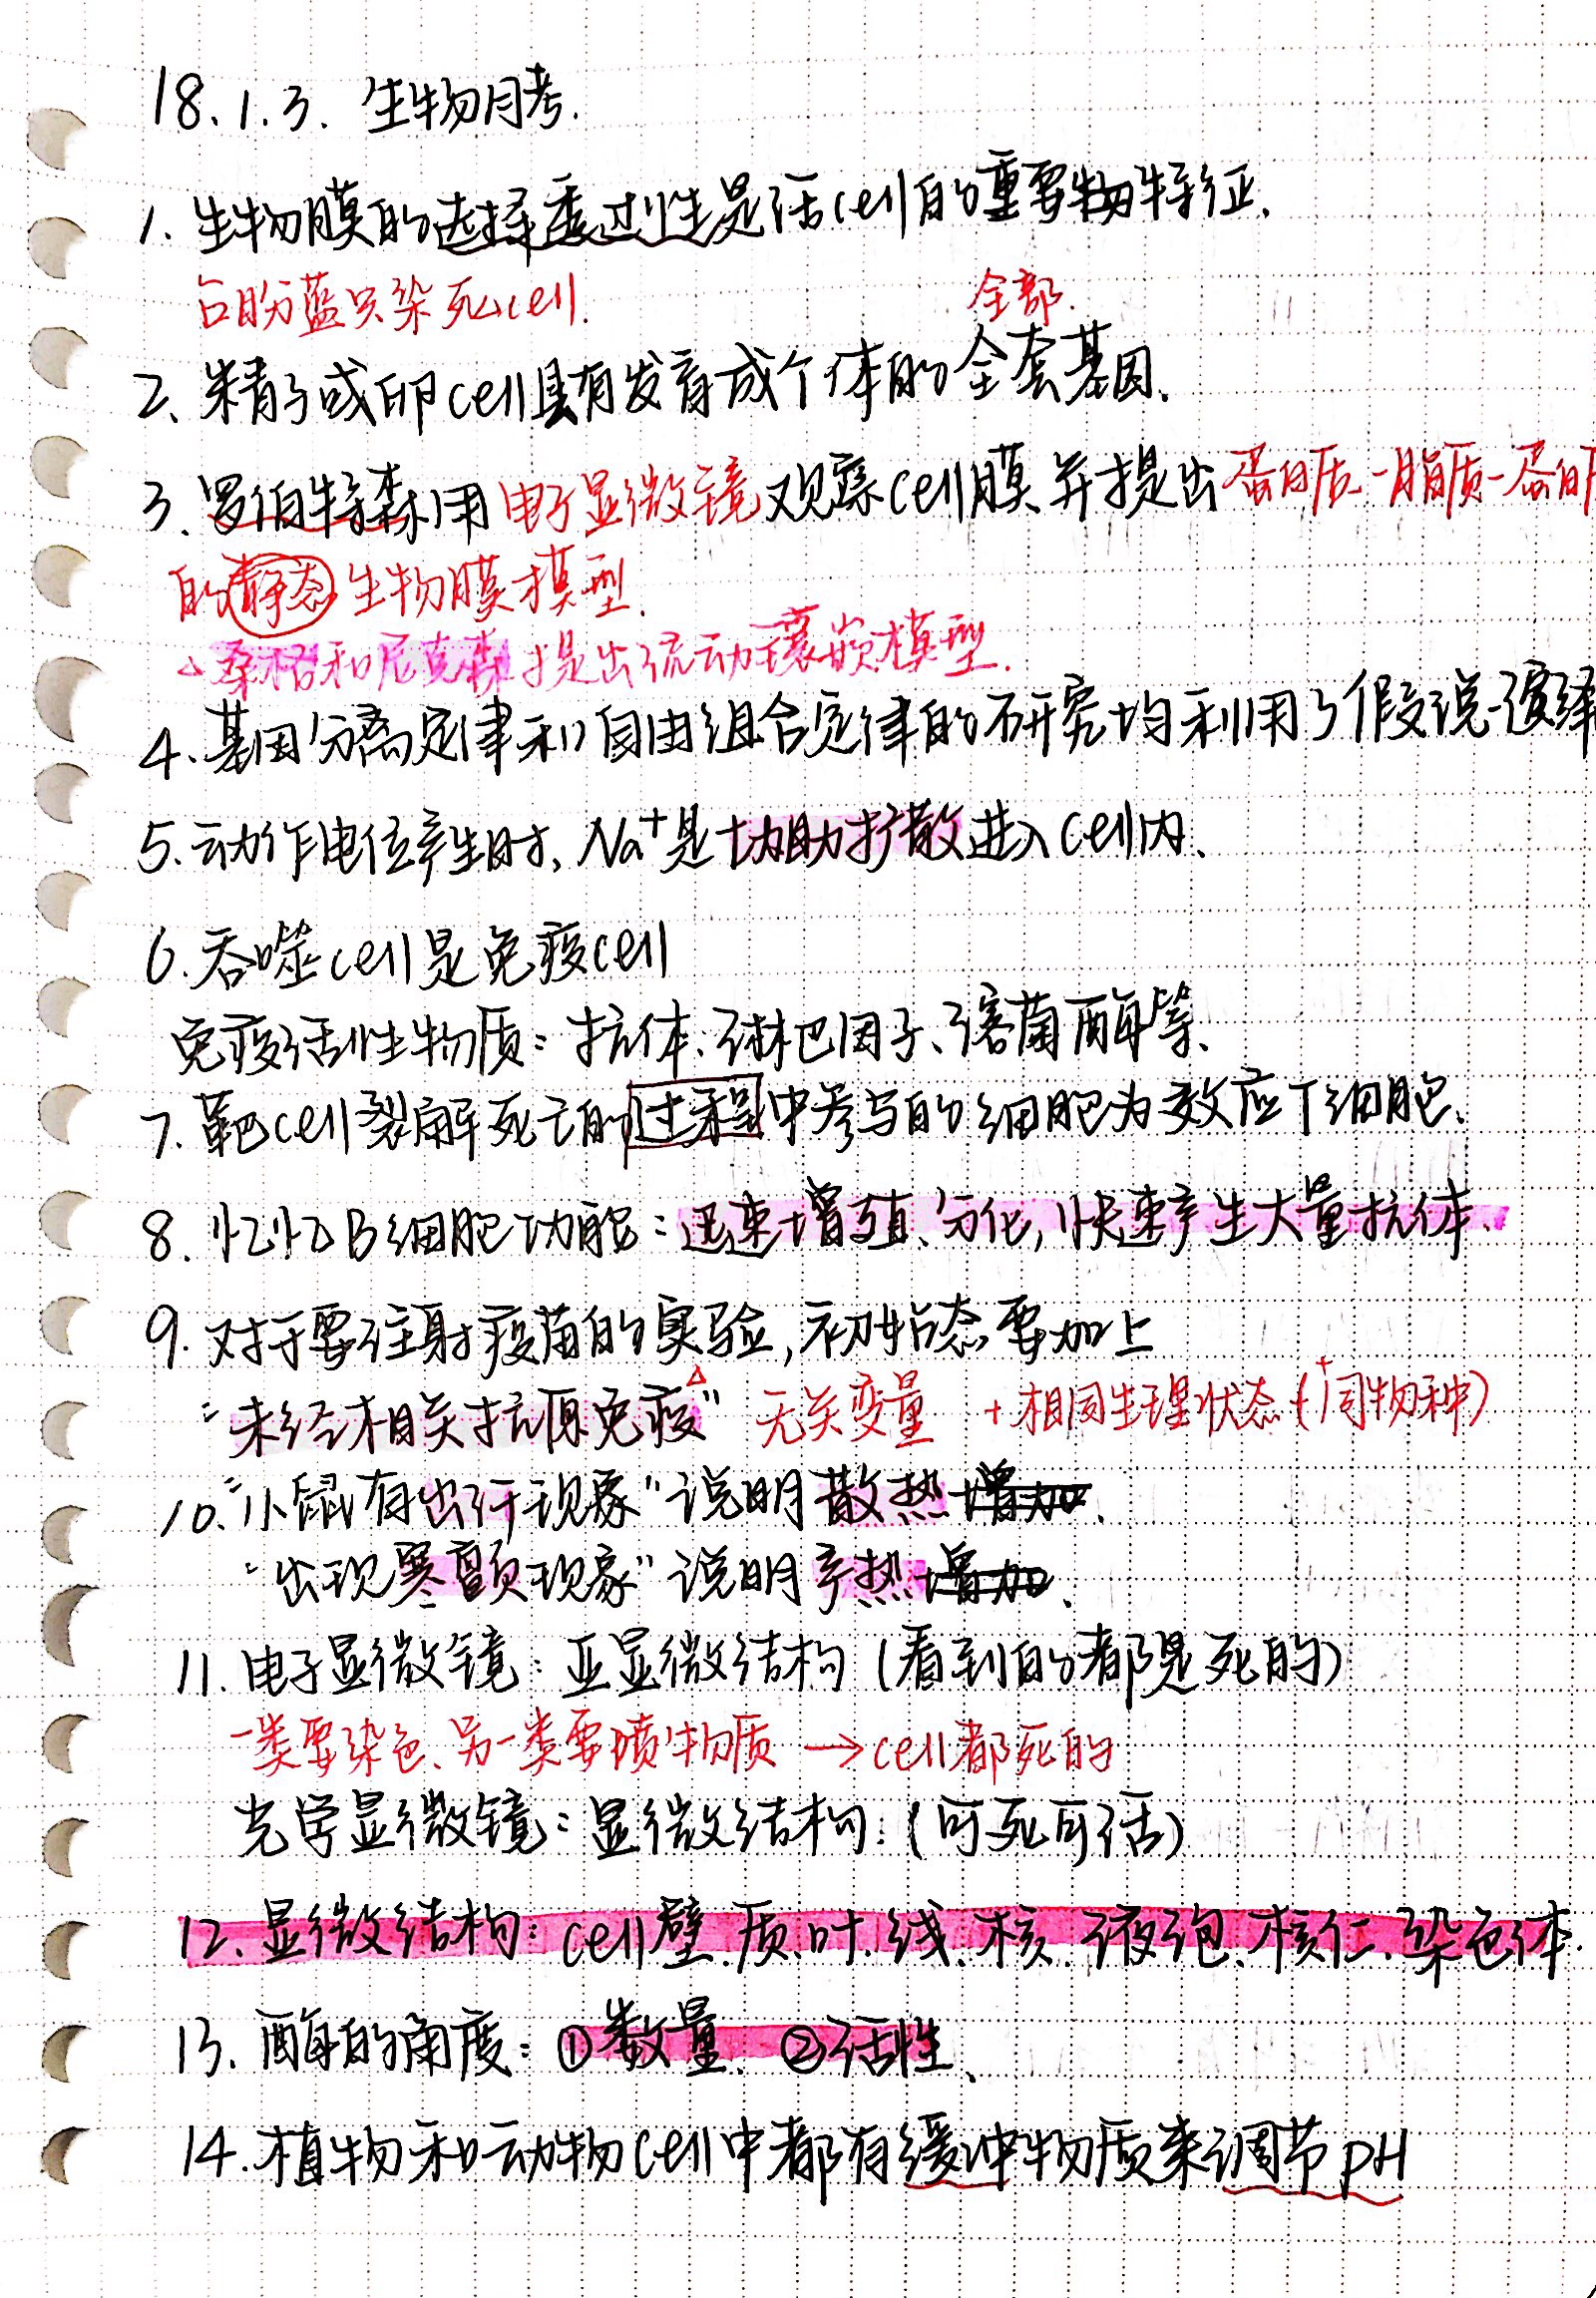 18.1.3. 生物月考.
1. 生物膜的选择透过性是活cell的重要特征.
台盼蓝只染死cell.
全部.
2. 精子或卵cell具有发育成个体的全套基因.
3. 罗伯特森用电子显微镜观察cell膜并提出蛋白质-脂质-蛋白
的静态生物膜模型.
△桑格和尼克森提出流动镶嵌模型.
4. 基因分离定律和自由组合定律的研究均利用了假说-演绎
5. 动作电位产生时, Na⁺是协助扩散进入cell内.
6. 吞噬cell是免疫cell
免疫活性物质: 抗体、淋巴因子、溶菌酶等.
7. 靶cell裂解死亡的过程中参与的细胞为效应T细胞.
8. 忆忆B细胞功能: 迅速增殖、分化, 快速产生大量抗体.
9. 对于要注射疫苗的实验, 初始态要加上
"未经相关抗原免疫"△ 无关变量 +相同生理状态(+同物种)
10. "小鼠有出汗现象"说明散热增加.
"出现寒颤现象"说明产热增加.
11. 电子显微镜: 亚显微结构 (看到的都是死的)
一类要染色、另一类要喷物质 → cell都死的
光学显微镜: 显微结构. (可死可活)
12. 显微结构: cell壁.质.叶.线.核.液泡.核仁.染色体.
13. 酶的角度: ①数量. ②活性.
14. 植物和动物cell中都有缓冲物质来调节pH